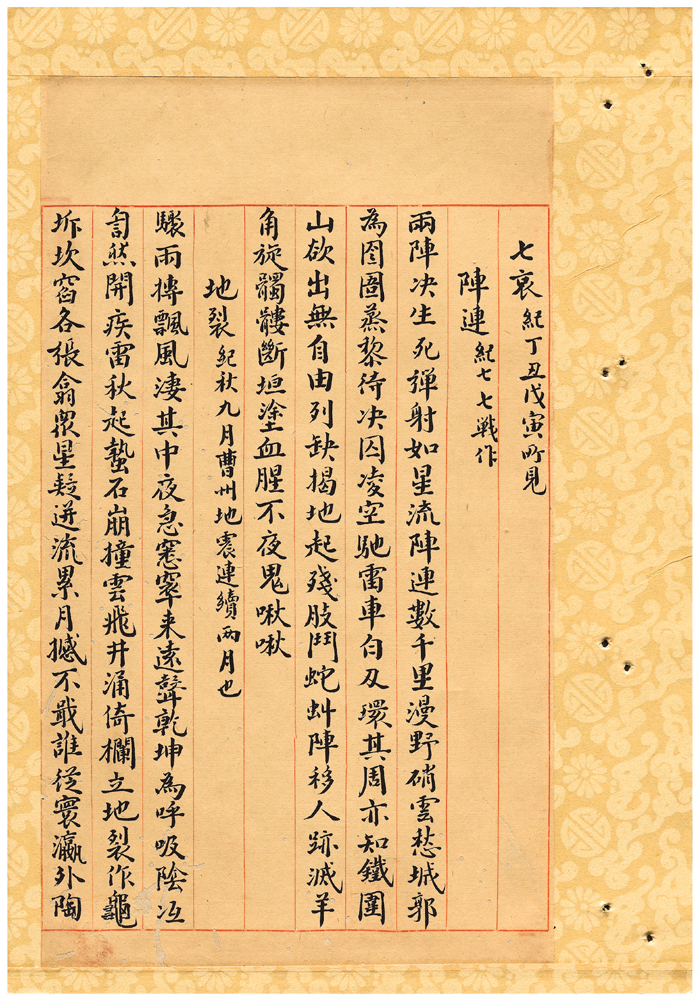 七哀 紀丁丑戊寅所見
陣連 紀七七戰作
兩陣决生死彈射如星流陣連數千里漫野硝雲愁城郭
為圄圖蒸黎待决囚凌空馳雷車白刃環其周亦知鐵圍
山欲出無自由列缺揭地起殘肢鬥蛇虯陣移人跡滅羊
角旋髑髏斷垣塗血腥不夜鬼啾啾
地裂 紀秋九月曹州地震連續兩月也
驟雨摶飄風淒其中夜急窸窣来遠聲乾坤為呼吸陰冱
訇然開疾雷秋起蟄石崩撞雲飛井涌倚欄立地裂作龜
坼坎窞各張翕眾星疑迸流累月撼不戢誰從寰瀛外陶